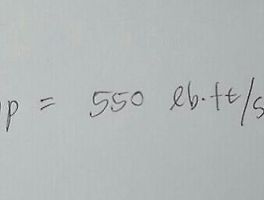 p = 550 lb.ft/s